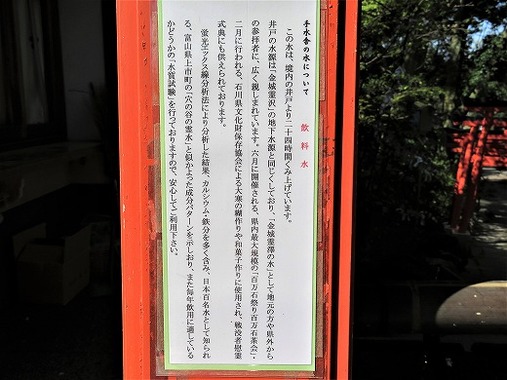 手水舎の水について
飲料水
この水は、境内の井戸より二十四時間くみ上げています。
井戸の水源は「金城霊沢」の地下水源と同じくしており、「金城霊澤の水」として地元の方や県外から
の参拝者に、広く親しまれています。六月に開催される、県内最大規模の「百万石祭り百万石茶会」・
二月に行われる、石川県文化財保存協会による大寒の糊作りや和菓子作りに使用され、戦没者慰霊
式典にも供えられております。
蛍光エックス線分析法により分析した結果、カルシウム・鉄分を多く含み、日本百名水として知られ
る、富山県上市町の「穴の谷の霊水」と似かよった成分パターンを示しおり、また毎年飲用に適している
かどうかの「水質試験」を行っておりますので、安心してご利用下さい。